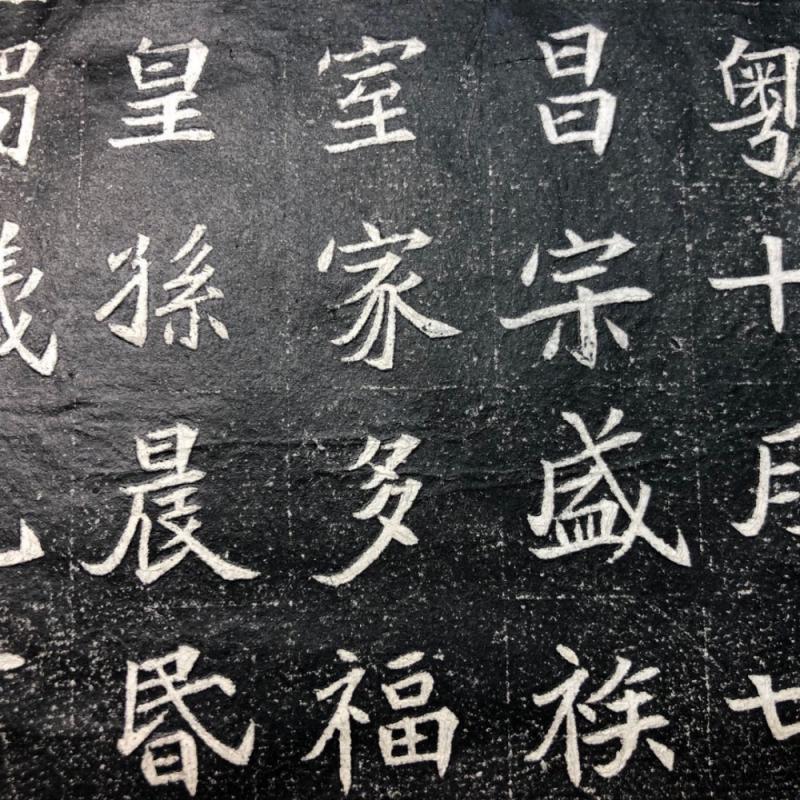 粤十月
昌宗盛族
室家多福
皇孫晨昬